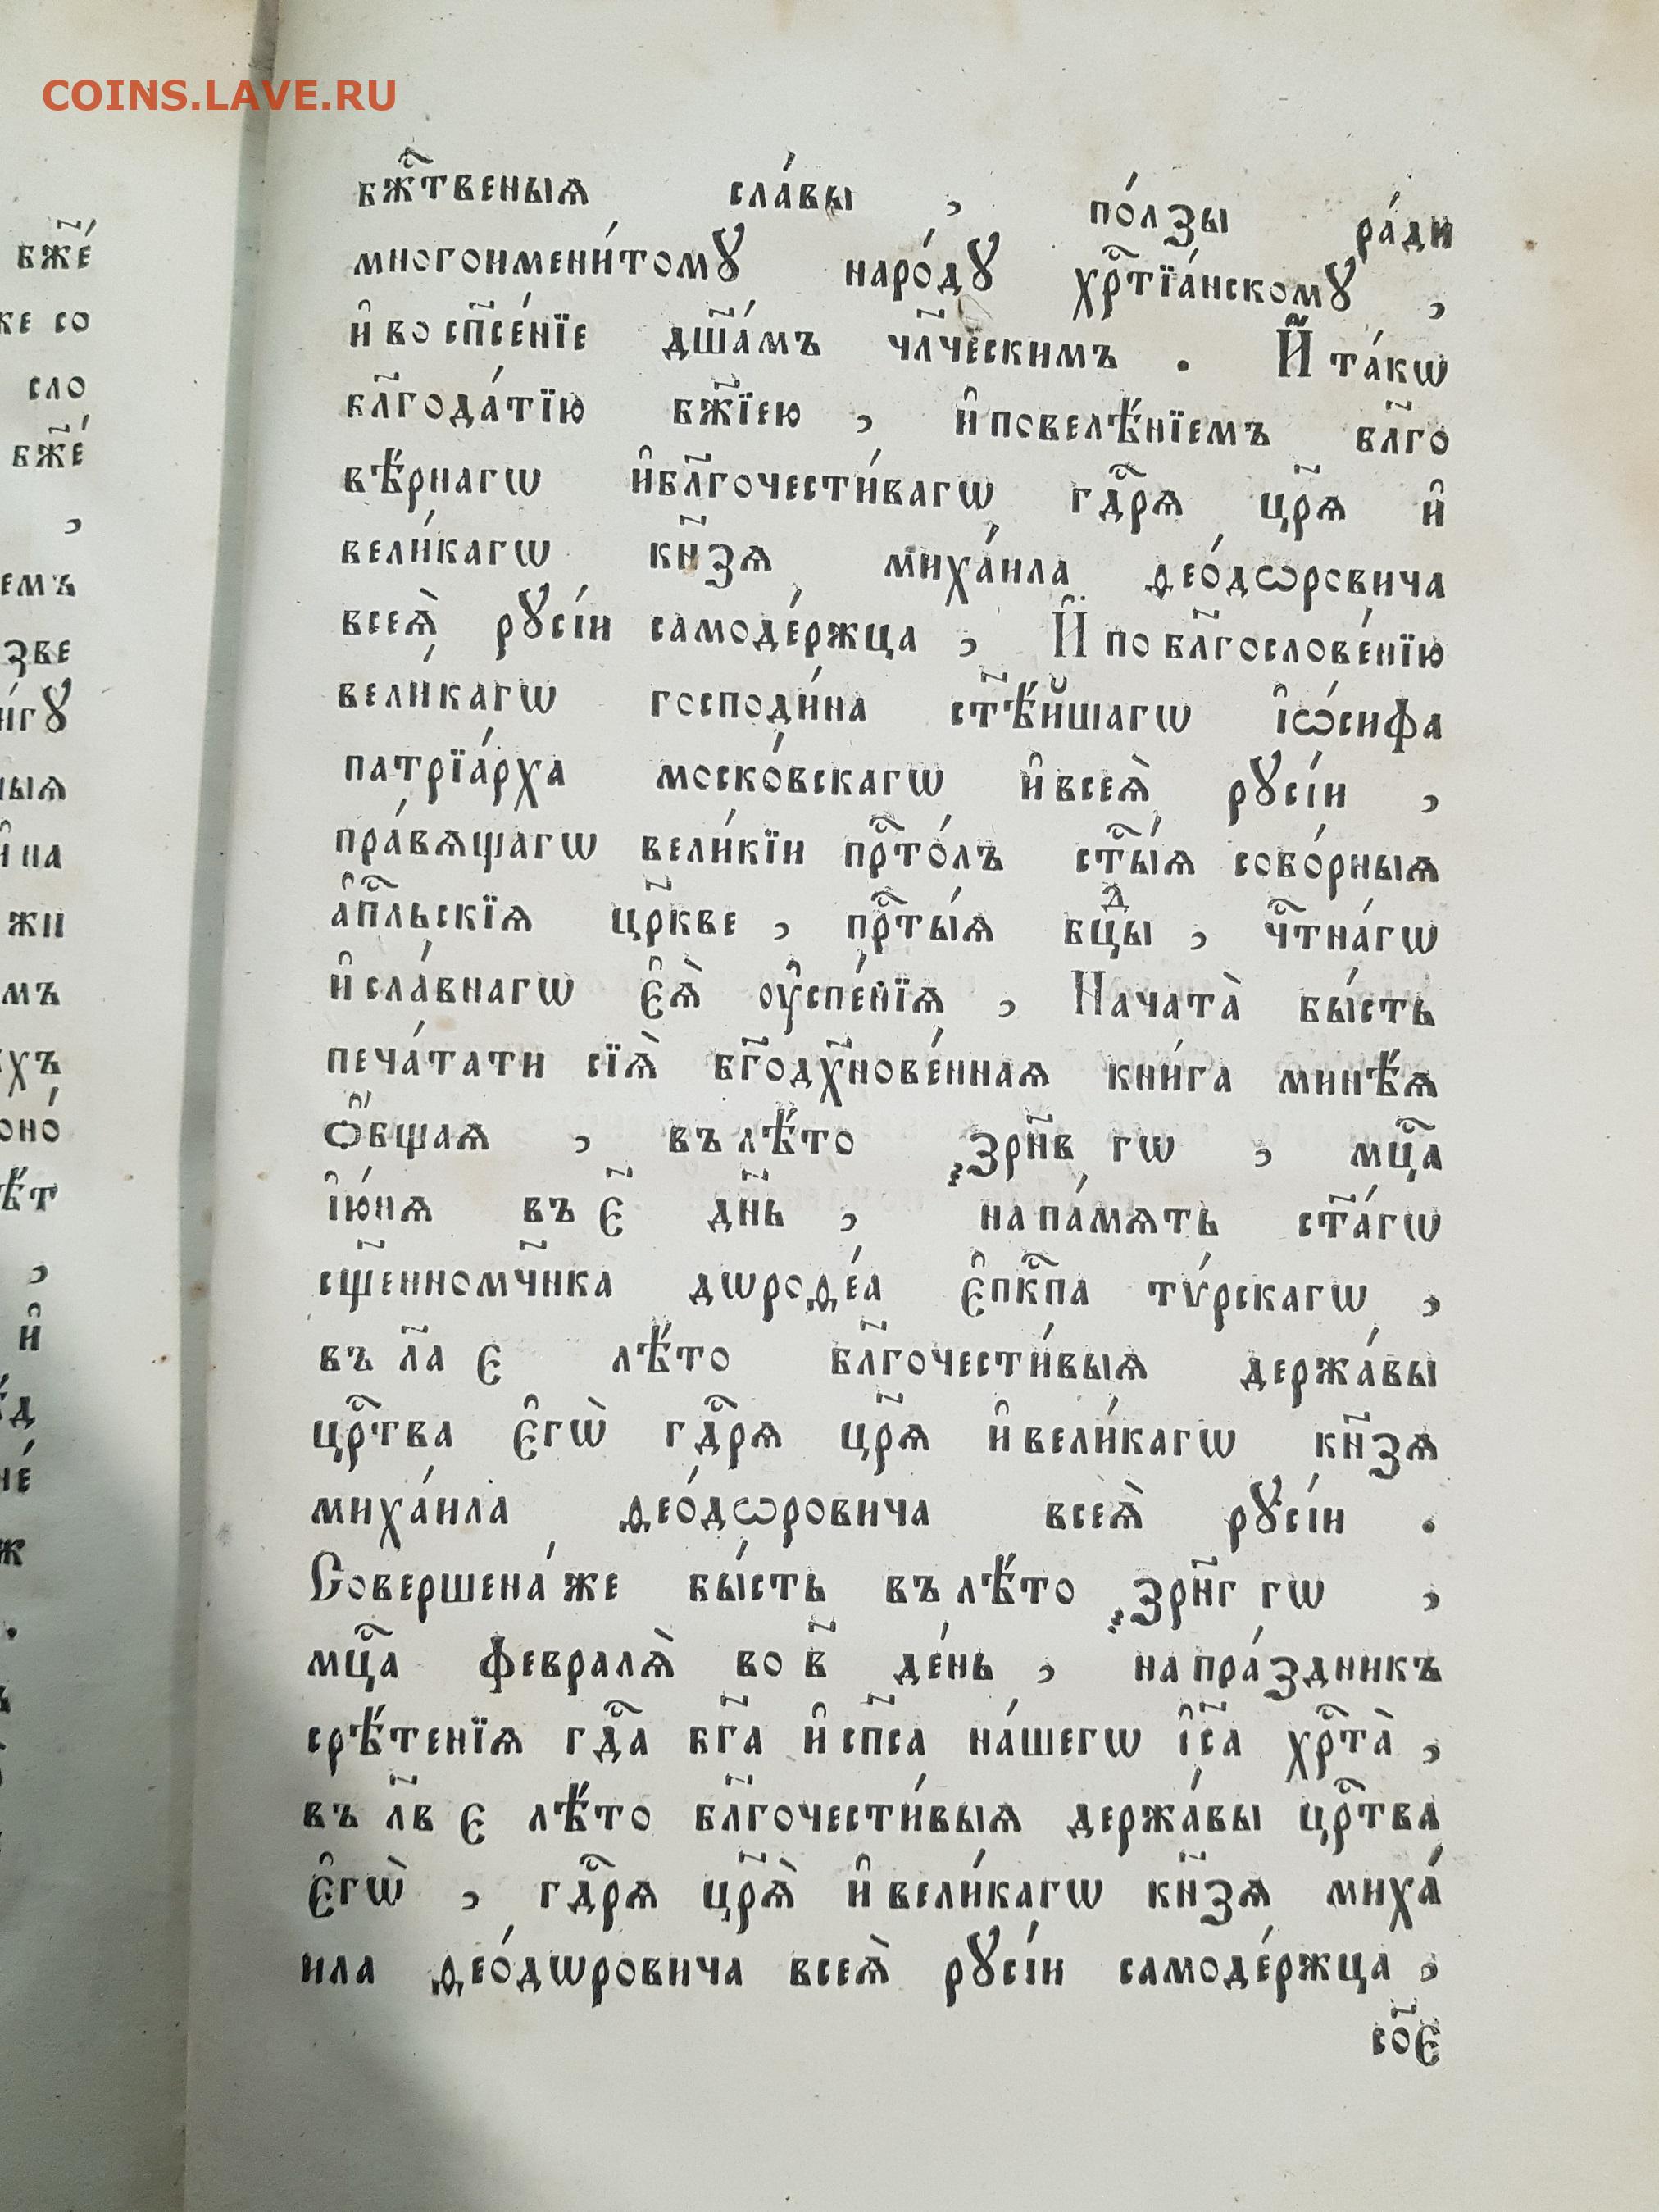 COINS.LAVE.RU
бж҇твеныѧ сла́вы , по́лзы ра́ди
многоимени́томꙋ наро́дꙋ хр҇тїа́нскомꙋ ,
и҆ во сп҃се́нїе дш҃а́мъ чл҃ческимъ . И҆ та́кѡ
бл҃года́тїю бж҃їею , и҆ повелѣ́нїемъ бл҃го
вѣ́рнагѡ и҆ бл҃гочести́вагѡ гдⷭ҇рѧ цр҃ѧ и҆
вели́кагѡ кн҃зѧ миха́ила ѳео́дѡровича
всеѧ̀ рꙋсі́и самоде́ржца , И҆ по бл҃гослове́нїю
вели́кагѡ господи́на ст҃ѣ́йшагѡ і҆ѡ́сифа
патрїа́рха моско́вскагѡ и҆ всеѧ̀ рꙋсі́и ,
пра́вѧщагѡ вели́кїи прⷭ҇то́лъ ст҃ы́ѧ собо́рныѧ
а҆пⷭ҇льскїѧ цр҃кве , прⷭ҇ты́ѧ бцⷣы , чⷭ҇тна́гѡ
и҆ сла́внагѡ є҆ѧ̀ оу҆спе́нїѧ , Начата̀ бы́сть
печа́тати сїѧ̀ бг҃одх҃нове́ннаѧ кни́га минѣ́ѧ
ѻ҆́бщаѧ , въ лѣ́то ҂зрн҃в гѡ , мцⷭ҇а
і҆ю́нѧ въ є҃ дн҃ь , на па́мѧть ст҃а́гѡ
сщ҃енномч҃нка дѡроѳе́а є҆пкⷭ҇па тѵ́рскагѡ ,
въ л҃а є лѣ́то бл҃гочести́выѧ держа́вы
црⷭ҇тва є҆гѡ̀ гдⷭ҇рѧ цр҃ѧ и҆ вели́кагѡ кн҃зѧ
миха́ила ѳео́дѡровича всеѧ̀ рꙋсі́и .
Соверше́на же бы́сть въ лѣ́то ҂зрн҃г гѡ ,
мцⷭ҇а февралѧ̀ во в҃ де́нь , на пра́здникъ
срѣ́тенїѧ гдⷭ҇а бг҃а и҆ сп҃са на́шегѡ і҆с҃а хрⷭ҇та̀ ,
въ л҃в є лѣ́то бл҃гочести́выѧ держа́вы црⷭ҇тва
є҆гѡ̀ , гдⷭ҇рѧ цр҃ѧ̀ и҆ вели́кагѡ кн҃зѧ миха́
ила ѳео́дѡровича всеѧ̀ рꙋсі́и самоде́ржца ,
со҃є